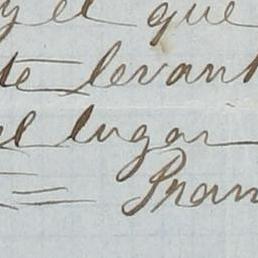 y el que
te levant
el lugar
Fran